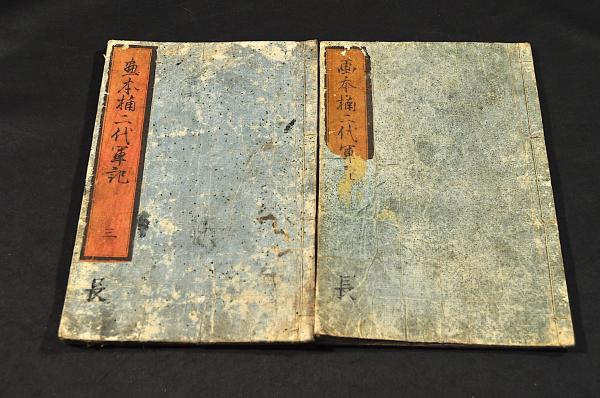 画本楠二代軍記
三
長
画本楠二代軍記
長